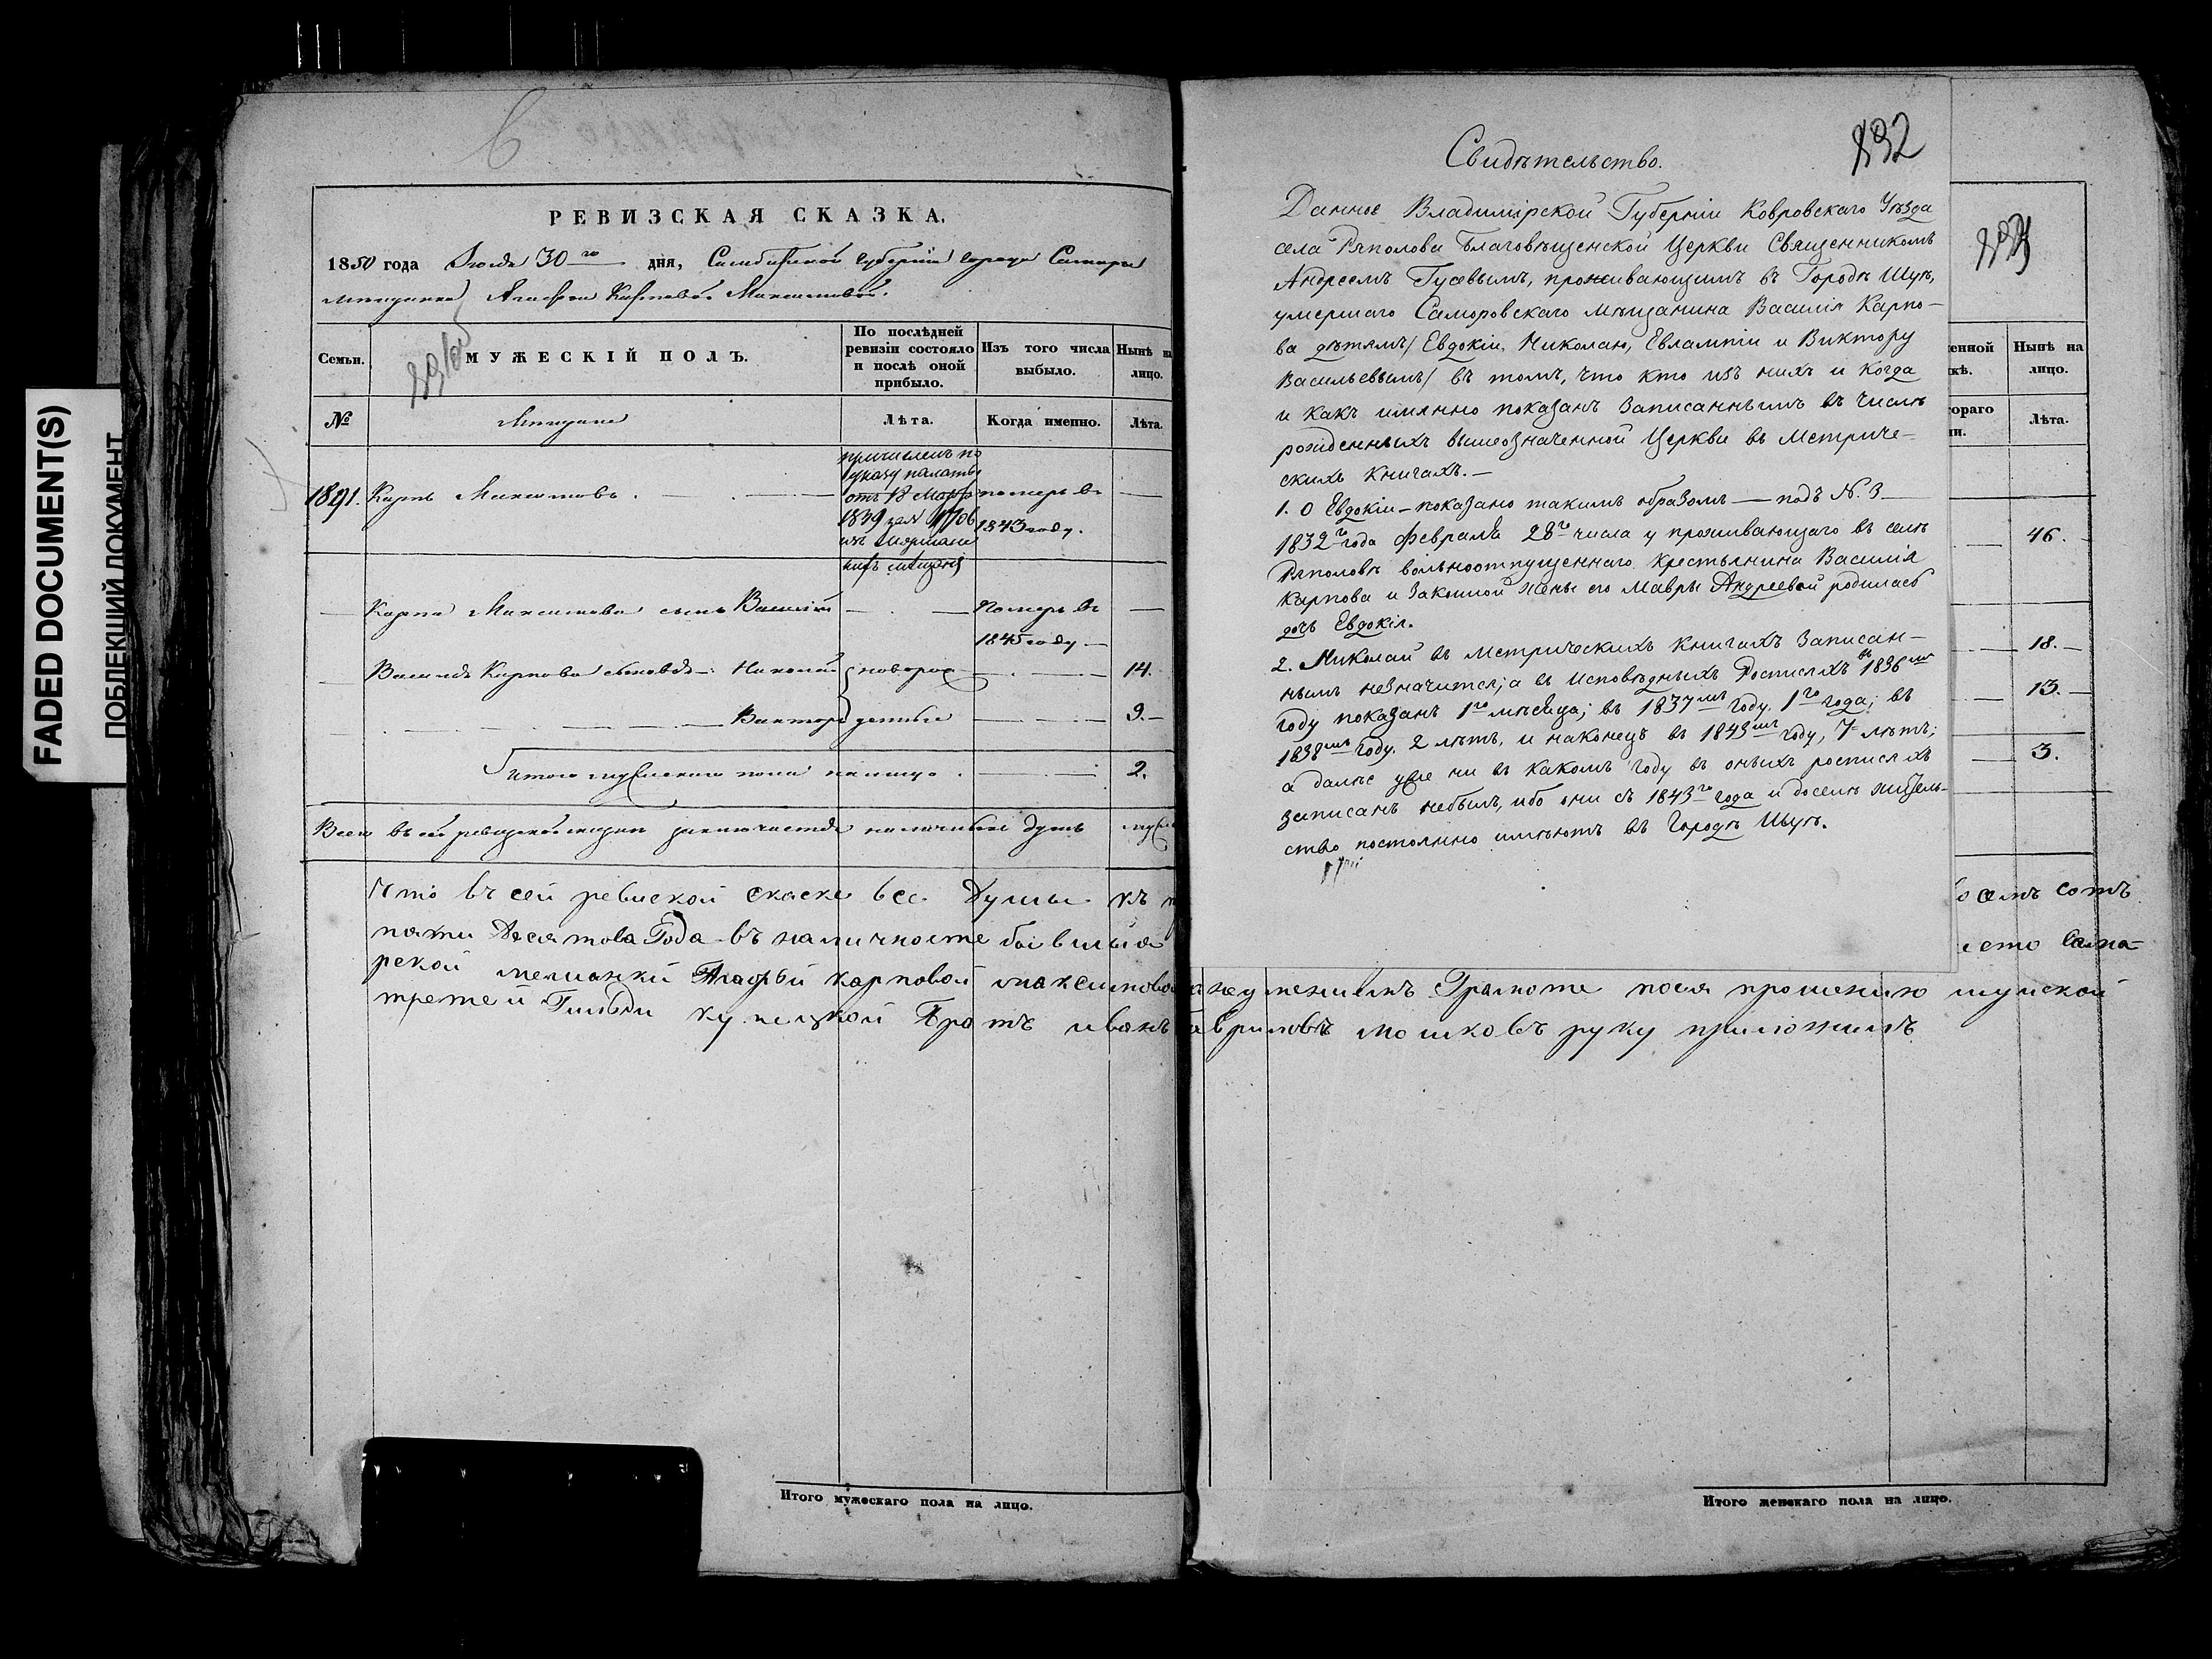 FADED DOCUMENT(S)
ПОБЛЕКШИЙ ДОКУМЕНТ
6
РЕВИЗСКАЯ СКАЗКА.
1850 года Июля 30го дня, Симбирской Губернии города Самары
мещанки Агафьи Карповой Максимовой.
Семьи.
МУЖЕСКІЙ ПОЛЪ.
По послѣдней ревизіи состояло и послѣ оной прибыло.
Изъ того числа выбыло.
Нынѣ на лицо.
№
Мещане
Лѣта.
Когда именно.
Лѣта.
причисленъ по
указу палаты
отъ 18 Марта
1839 за № 1706
1891. Карпъ Максимовъ. померъ въ
1843 году.
Карпа Максимова сынъ Василій померъ въ
1845 году
Василья Карпова сыновья Николай новорож 14.
Викторъ денные 9.
Итого мужескаго пола на лицо. 2.
Всего въ сей ревизской сказке заключается наличныхъ душъ
Что въ сей ревиской скаске все Душы къ
пяти Десятова Года въ наличносте бывшыя
рской мешанки Агафьи карповой максимовой
третей Гильди купецкой Братъ иванъ
832
Свидѣтельство.
Данное Владимірской Губерніи Ковровскаго Уѣзда
села Ряполова Благовѣщенской Церкви Священникомъ
Андреемъ Гусевымъ, проживающимъ въ Городѣ Шуѣ,
умершаго Саморовскаго мѣщанина Василія Карпо-
ва дѣтямъ/ Евдокіи, Николаю, Евлампіи и Виктору
Васильевымъ/ въ томъ, что кто изъ нихъ и когда
и какъ имянно показанъ записаннымъ въ числѣ
рожденныхъ вышеозначенной Церкви въ Метриче-
скихъ Книгахъ.—
1. О Евдокіи—показано такимъ образомъ — подъ N. 3
1832го года Февраля 28го числа у проживающаго въ селѣ
Ряполовѣ вольноотпущеннаго Крестьянина Василія
Карпова и Законной Жены его Мавры Андреевой родилась
дочь Евдокія.
2. Николай въ Метрическихъ Книгахъ Записан-
нымъ незначится; а въ Исповѣдныхъ Росписяхъ въ 1836мъ
году показанъ 1го мѣсяца; въ 1837мъ году, 1го года; въ
1838мъ году. 2 лѣтъ, и наконецъ въ 1843мъ году, 7 лѣтъ;
а далѣе уже ни въ какомъ году въ оныхъ росписяхъ
записанъ небылъ, ибо они съ 1843го года и доселѣ житель-
ство постоянно имѣютъ въ Городѣ Шуѣ.
енной
Нынѣ на лицо.
ораго
Лѣта.
46.
18.
13.
3.
осемъ сотъ
сто Сама-
неуменіемъ Грамоте посля прошению шуйской
авриловъ мошковъ руку приложилъ
Итого мужескаго пола на лицо.
Итого женскаго пола на лицо.